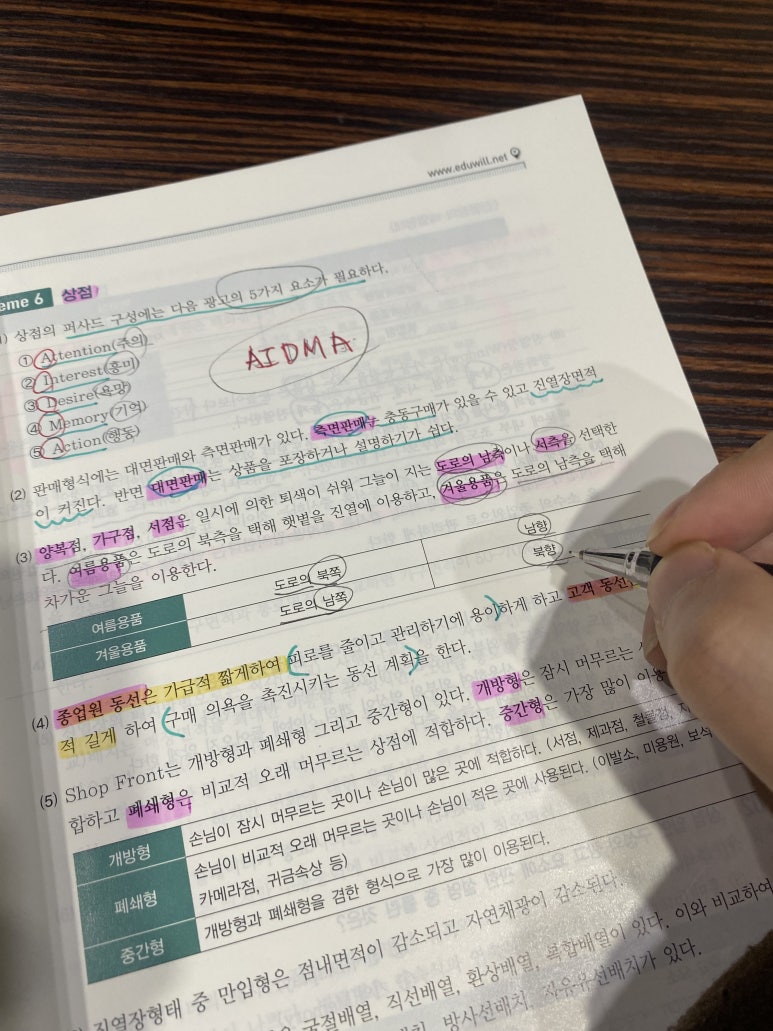 www.eduwill.net
eme 6 상점
상점의 퍼사드 구성에는 다음 광고의 5가지 요소가 필요하다.
① Attention(주의)
② Interest(흥미)
③ Desire(욕망)
④ Memory(기억)
⑤ Action(행동)
AIDMA
(2) 판매형식에는 대면판매와 측면판매가 있다. 측면판매는 충동구매가 있을 수 있고 진열장면적
이 커진다. 반면 대면판매는 상품을 포장하거나 설명하기가 쉽다.
(3) 양복점, 가구점, 서점은 일시에 의한 퇴색이 쉬워 그늘이 지는 도로의 남측이나 서측을 선택한
다. 여름용품은 도로의 북측을 택해 햇볕을 진열에 이용하고, 겨울용품은 도로의 남측을 택해
차가운 그늘을 이용한다.
여름용품 도로의 북쪽 남향
겨울용품 도로의 남쪽 북향
(4) 종업원 동선은 가급적 짧게하여 피로를 줄이고 관리하기에 용이하게 하고 고객 동선
적 길게 하여 구매 의욕을 촉진시키는 동선 계획을 한다.
(5) Shop Front는 개방형과 폐쇄형 그리고 중간형이 있다. 개방형은 잠시 머무르는
합하고 폐쇄형은 비교적 오래 머무르는 상점에 적합하다. 중간형은 가장 많이 이용
개방형 손님이 잠시 머무르는 곳이나 손님이 많은 곳에 적합하다. (서점, 제과점, 철물점,
폐쇄형 손님이 비교적 오래 머무르는 곳이나 손님이 적은 곳에 사용된다. (이발소, 미용원, 보석
카메라점, 귀금속상 등)
중간형 개방형과 폐쇄형을 겸한 형식으로 가장 많이 이용된다.
진열장형태 중 만입형은 점내면적이 감소되고 자연채광이 감소된다.
굴절배열, 직선배열, 환상배열, 복합배열이 있다. 이와 비교하여
방사선배치, 자유유선배치가 있다.